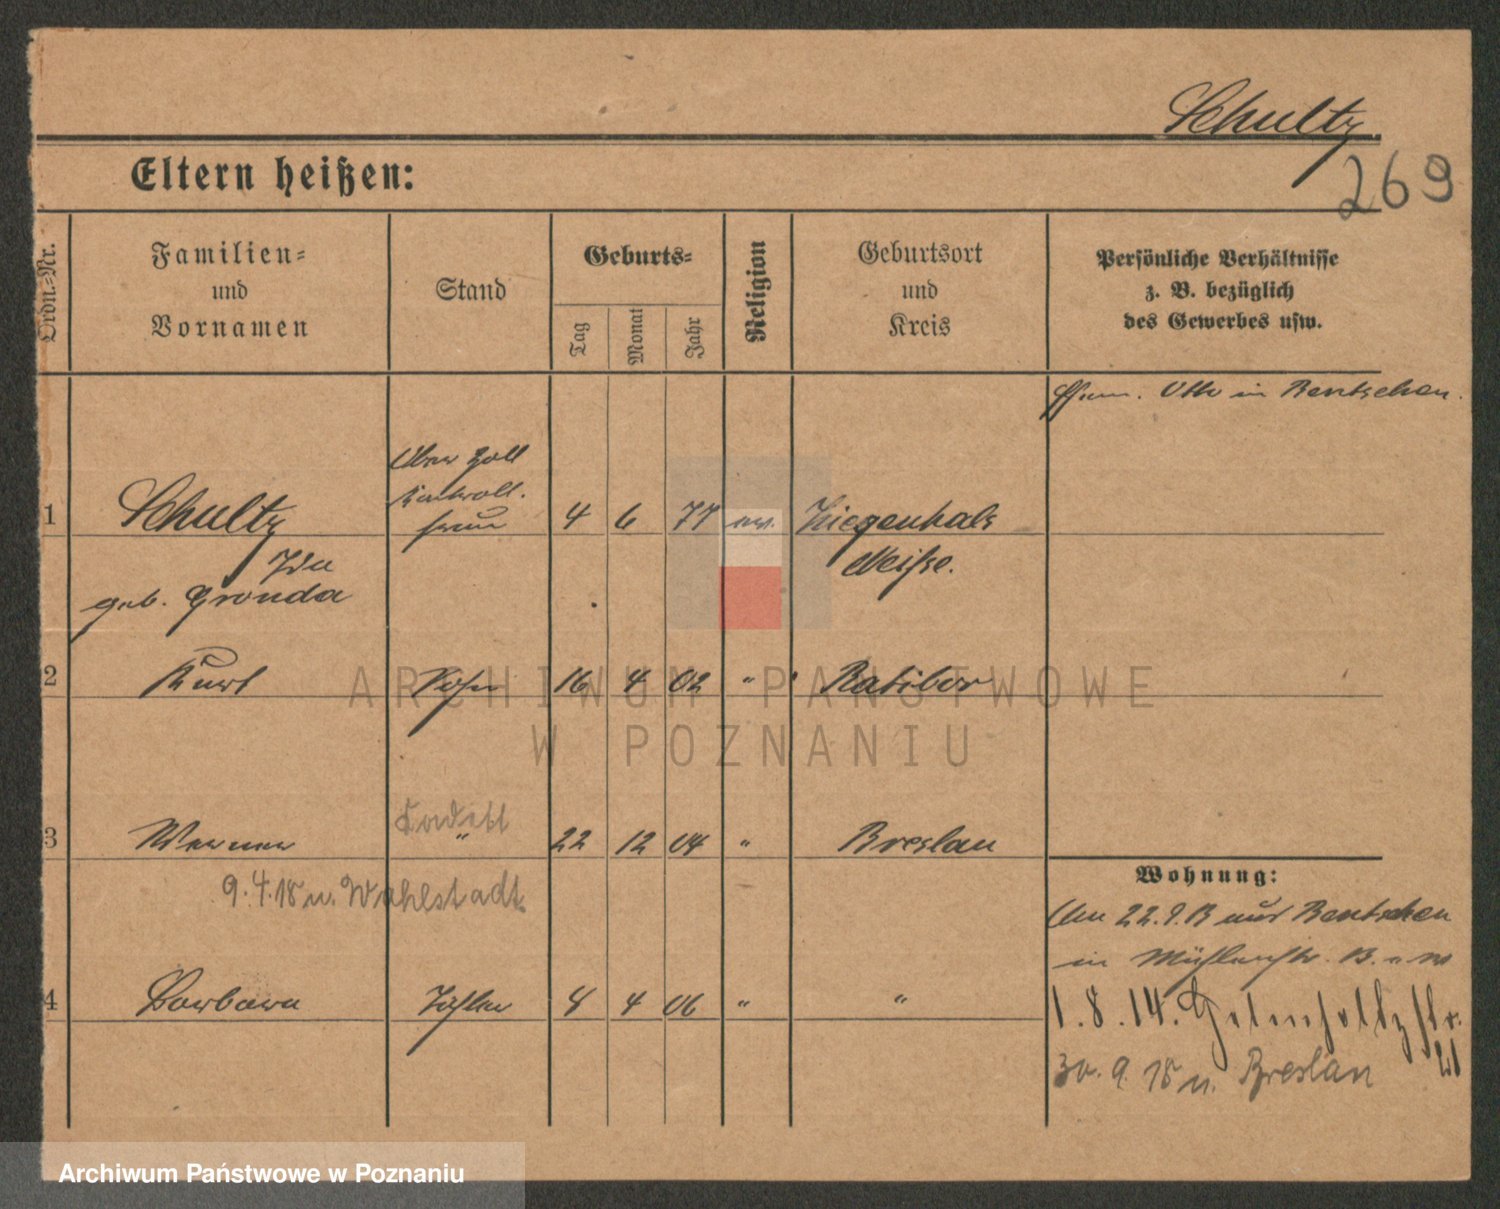 Schultz.
269
Eltern heißen:
Ordn.-Nr.
Familien-
und
Vornamen
Stand
Geburts-
Tag
Monat
Jahr
Religion
Geburtsort
und
Kreis
Persönliche Verhältnisse
z. B. bezüglich
des Gewerbes usw.
Otto in Bentschen.
1
Schultz
Ida
geb. Gronda
Ober Zoll
Kontroll.
frau
4 6 77 ev.
Ziegenhals
Neisse.
2 Kurt Sohn 16 4 02 " Ratibor
3 Werner
Kadett
"
22 12 04 " Breslau
9.4.18 n. Wahlstadt
4 Barbara Tochter 8 4 06 " "
Wohnung:
Am 22.9.13 aus Bentschen
in Mühlenstr.
1.8.14.
21
30.9.18 n. Breslau
ARCHIWUM PAŃSTWOWE
W POZNANIU
Archiwum Państwowe w Poznaniu